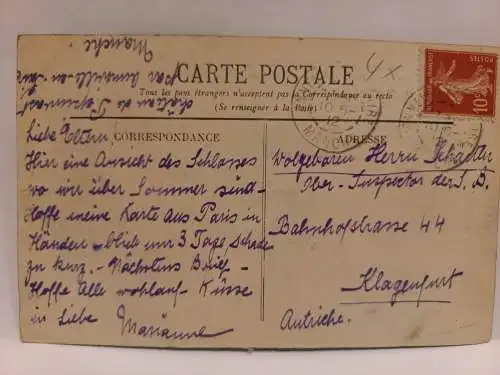 CARTE POSTALE
Tous les pays étrangers n'acceptent pas la Correspondance au recto
(Se renseigner à la Poste)
CORRESPONDANCE
ADRESSE
POSTES
10c
Liebe Eltern!
Hier eine Ansicht des Schlosses
wo wir über Sommer sind.
Hoffe meine Karte aus Paris in
Händen. - blieb nur 3 Tage, schade
zu kurz. - Nächstens Brief -
Hoffe Alle wohlauf Küsse
in Liebe
Marianne
Wolgeboren Herrn
Ober-Inspector der S. B.
Bahnhofstrasse 44
Klagenfurt
Autriche.
château de
par
Manche